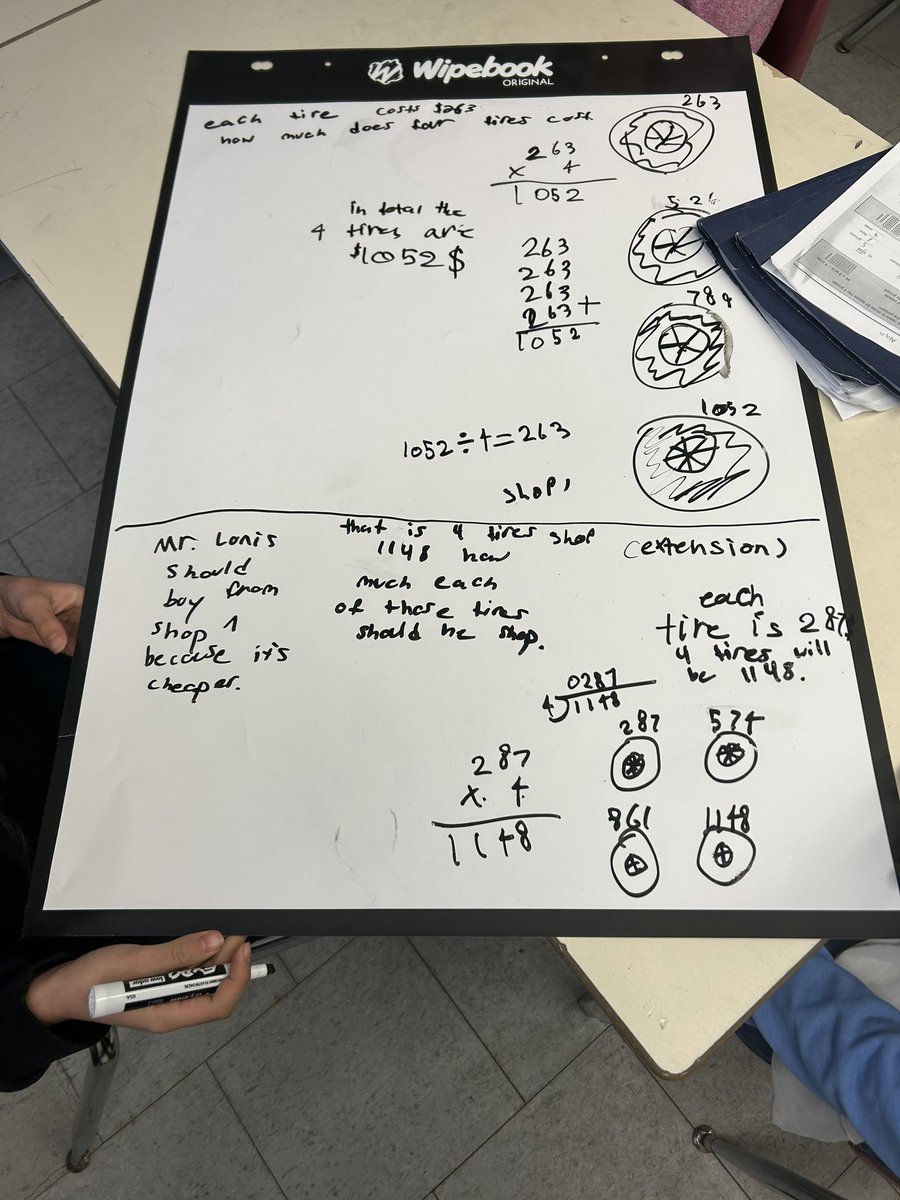 Wipebook
ORIGINAL
each tire costs $263
how much does four tires cost
263
x 4
1052
in total the
4 tires are
$1052$
263
263
263
263+
1052
1052÷4=263
shop 1
263
789
1052
Mr. Lonis
should
boy from
shop 1
because it's
cheaper.
that is 4 tires shop
1148 how
much each
of those tires
should be shop.
(extension)
each
tire is 287
4 tires will
be 1148.
0287
4)1148
287
x. 4
1148
287
574
861
1148
EXPO
low odor